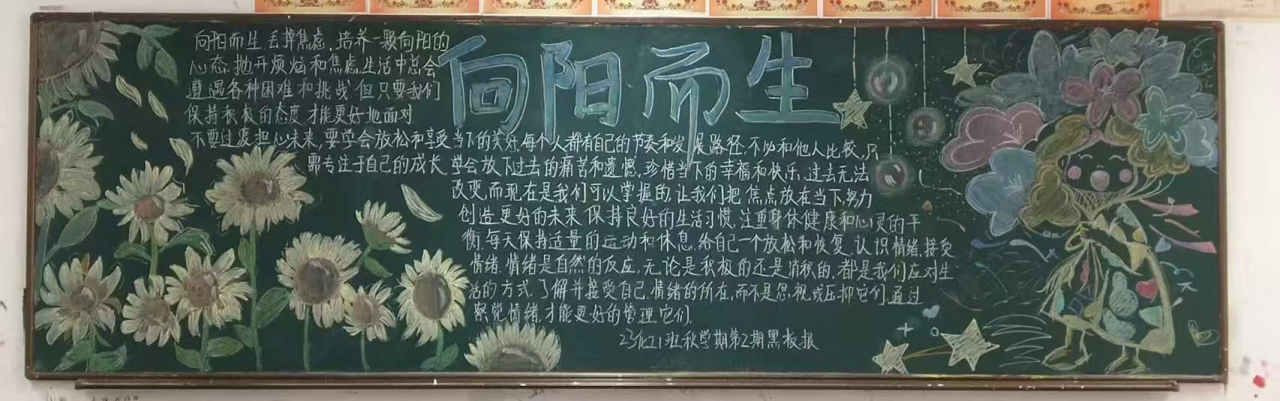 向阳而生
向阳而生,丢掉焦虑,培养一颗向阳的
心态,抛开烦恼和焦虑,生活中总会
遭遇各种困难和挑战,但只要我们
保持积极的态度,才能更好地面对
不要过度担心未来,要学会放松和享受当下的美好,每个人都有自己的节奏和发展路径,不必和他人比较,只
需专注于自己的成长,学会放下过去的痛苦和遗憾,珍惜当下的幸福和快乐,过去无法
改变,而现在是我们可以掌握的,让我们把焦点放在当下,努力
创造更好的未来,保持良好的生活习惯,注重身体健康和心灵的平
衡,每天保持适量的运动和休息,给自己一个放松和恢复,认识情绪,接受
情绪,情绪是自然的反应,无论是积极的还是消极的,都是我们应对生
活的方式,了解并接受自己情绪的所在,而不是忽视或压抑它们,通过
察觉情绪,才能更好的管理它们
23化工1班秋学期第2期黑板报